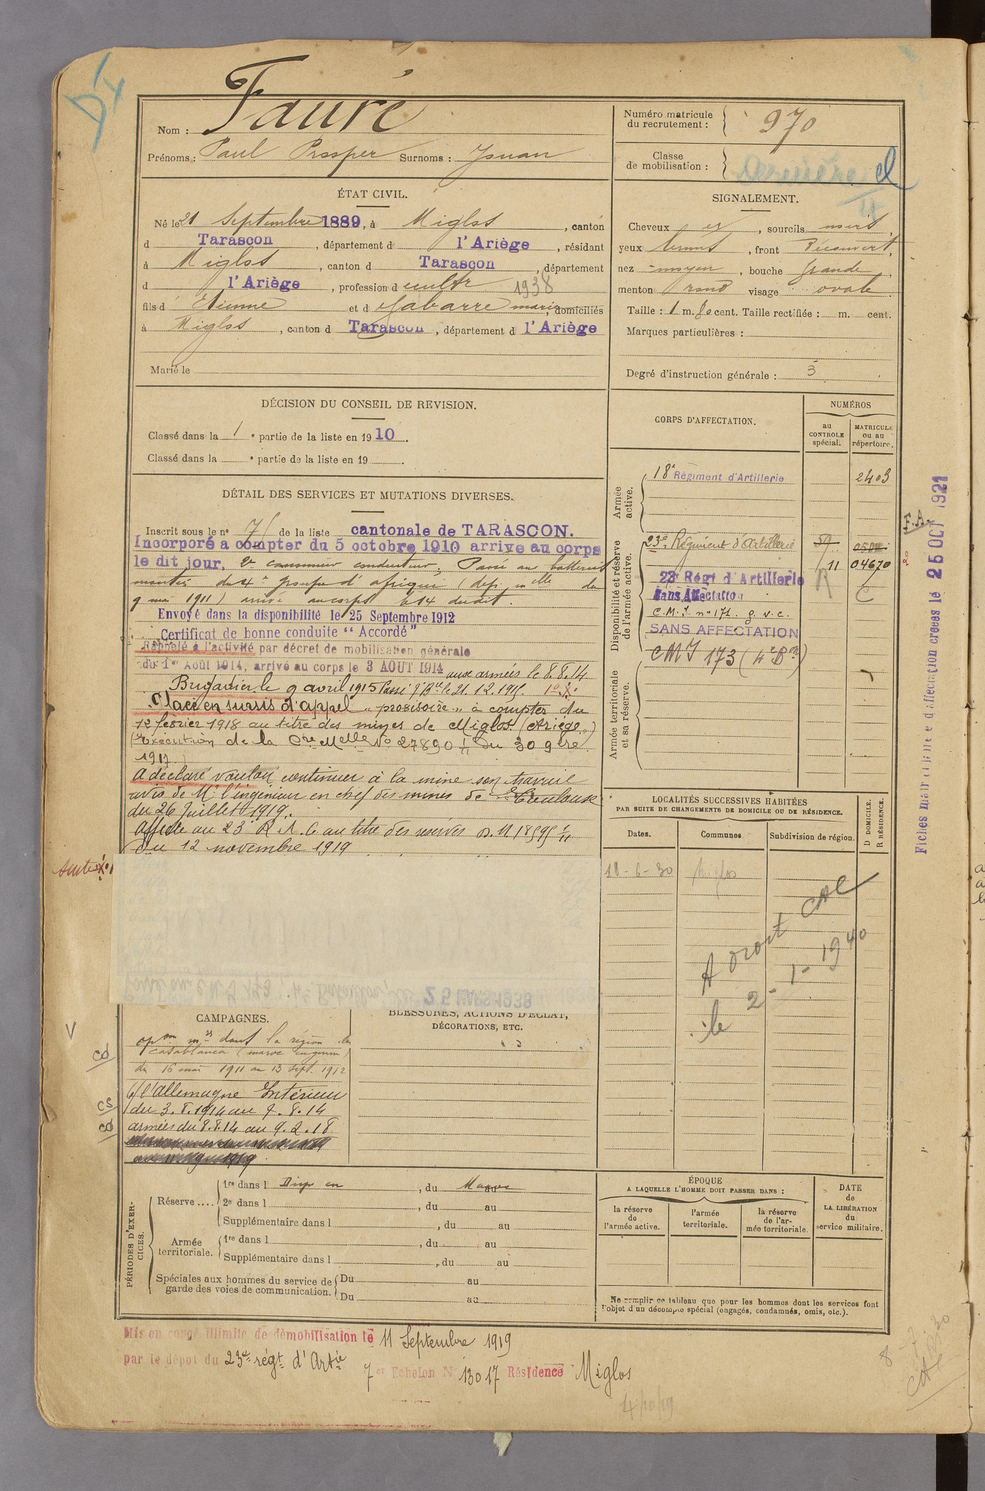 Nom : Faure
Prénoms : Paul Prosper Surnoms :
Numéro matricule du recrutement : 970
Classe de mobilisation :
ÉTAT CIVIL.
Né le 21 Septembre 1889, à Miglos, canton
d Tarascon, département d l'Ariège, résidant
à Miglos, canton d Tarascon, département
d l'Ariège, profession d cultr 1938
fils d Etienne et d Gabarre Marie, domiciliés
à Miglos, canton d Tarascon, département d l'Ariège
Marié le
SIGNALEMENT.
Cheveux et, sourcils noirs,
yeux bruns, front Découvert,
nez moyen, bouche grande,
menton rond visage ovale.
Taille : 1 m. cent. Taille rectifiée : m. cent.
Marques particulières :
Degré d'instruction générale : 3
DÉCISION DU CONSEIL DE REVISION.
Classé dans la 1 e partie de la liste en 1910.
Classé dans la e partie de la liste en 19
DÉTAIL DES SERVICES ET MUTATIONS DIVERSES.
Inscrit sous le n° 7 de la liste cantonale de TARASCON.
Incorporé à compter du 5 octobre 1910 arrive au corps
le dit jour, 2e canonnier conducteur. Passé au batteries
montées du 4e groupe d'afrique (dép. mlle du
9 mai 1911) arrivé au corps le 14 dudit
Envoyé dans la disponibilité le 25 Septembre 1912
Certificat de bonne conduite "Accordé"
Rappelé à l'activité par décret de mobilisation générale
du 1er Août 1914, arrivé au corps le 3 AOUT 1914 aux armées le 8.8.14
Brigadier le 9 avril 1915
Placé en sursis d'appel "provisoire" à compter du
12 février 1918 au titre des mines de Miglos (Ariège)
(Exécution de la Cre Melle No 27890 du 30 9bre
1917
A déclaré vouloir continuer à la mine son travail
avis de Mr l'ingénieur en chef des mines de Toulouse
du 26 Juillet 1919.
Affecté au 23e R.A.C au titre des réserves
du 12 novembre 1919
CORPS D'AFFECTATION.
NUMÉROS
au CONTROLE spécial.
MATRICULE ou au répertoire.
Armée active.
18e Régiment d'Artillerie 2403
Disponibilité et réserve de l'armée active.
23e Régiment d'Artillerie
23e Régt d'Artillerie 11 04670
Sans Affectation
C.M.I. n° 171. g.v.c.
SANS AFFECTATION
Armée territoriale et sa réserve.
CMI 173 (4e Bon)
Fiches matricule et d'affectation créées le 25 OCT 1921
LOCALITÉS SUCCESSIVES HABITÉES
PAR SUITE DE CHANGEMENTS DE DOMICILE OU DE RÉSIDENCE.
Dates. Communes. Subdivision de région. D DOMICILE. R RÉSIDENCE.
18-6-30 Miglos
A Droit CAC
le 2-1-1940
25 MARS 1939
CAMPAGNES.
opon mre dans la région de
Casablanca (maroc
du 16 mai 1911 au 13 sept. 1912
C/ l'allemagne Intérieur
du 3.8.1914 au 7.8.14
armées du 8.8.14 au 9.2.18
BLESSURES, ACTIONS D'ÉCLAT,
DÉCORATIONS, ETC.
PÉRIODES D'EXERCICES.
Réserve .... 1re dans l Disp en, du Maroc au
2e dans l, du au
Supplémentaire dans l, du au
Armée territoriale. 1re dans l, du au
Supplémentaire dans l, du au
Spéciales aux hommes du service de garde des voies de communication. Du au
Du au
ÉPOQUE
A LAQUELLE L'HOMME DOIT PASSER DANS :
la réserve de l'armée active.
l'armée territoriale.
la réserve de l'armée territoriale.
DATE de LA LIBÉRATION du service militaire.
Ne remplir ce tableau que pour les hommes dont les services font
l'objet d'un décompte spécial (engagés, condamnés, omis, etc.).
Mis en congé illimité de démobilisation le 11 Septembre 1919
par le dépôt du 23e régt d'Artie
7 er Echelon N° 13017 Résidence Miglos